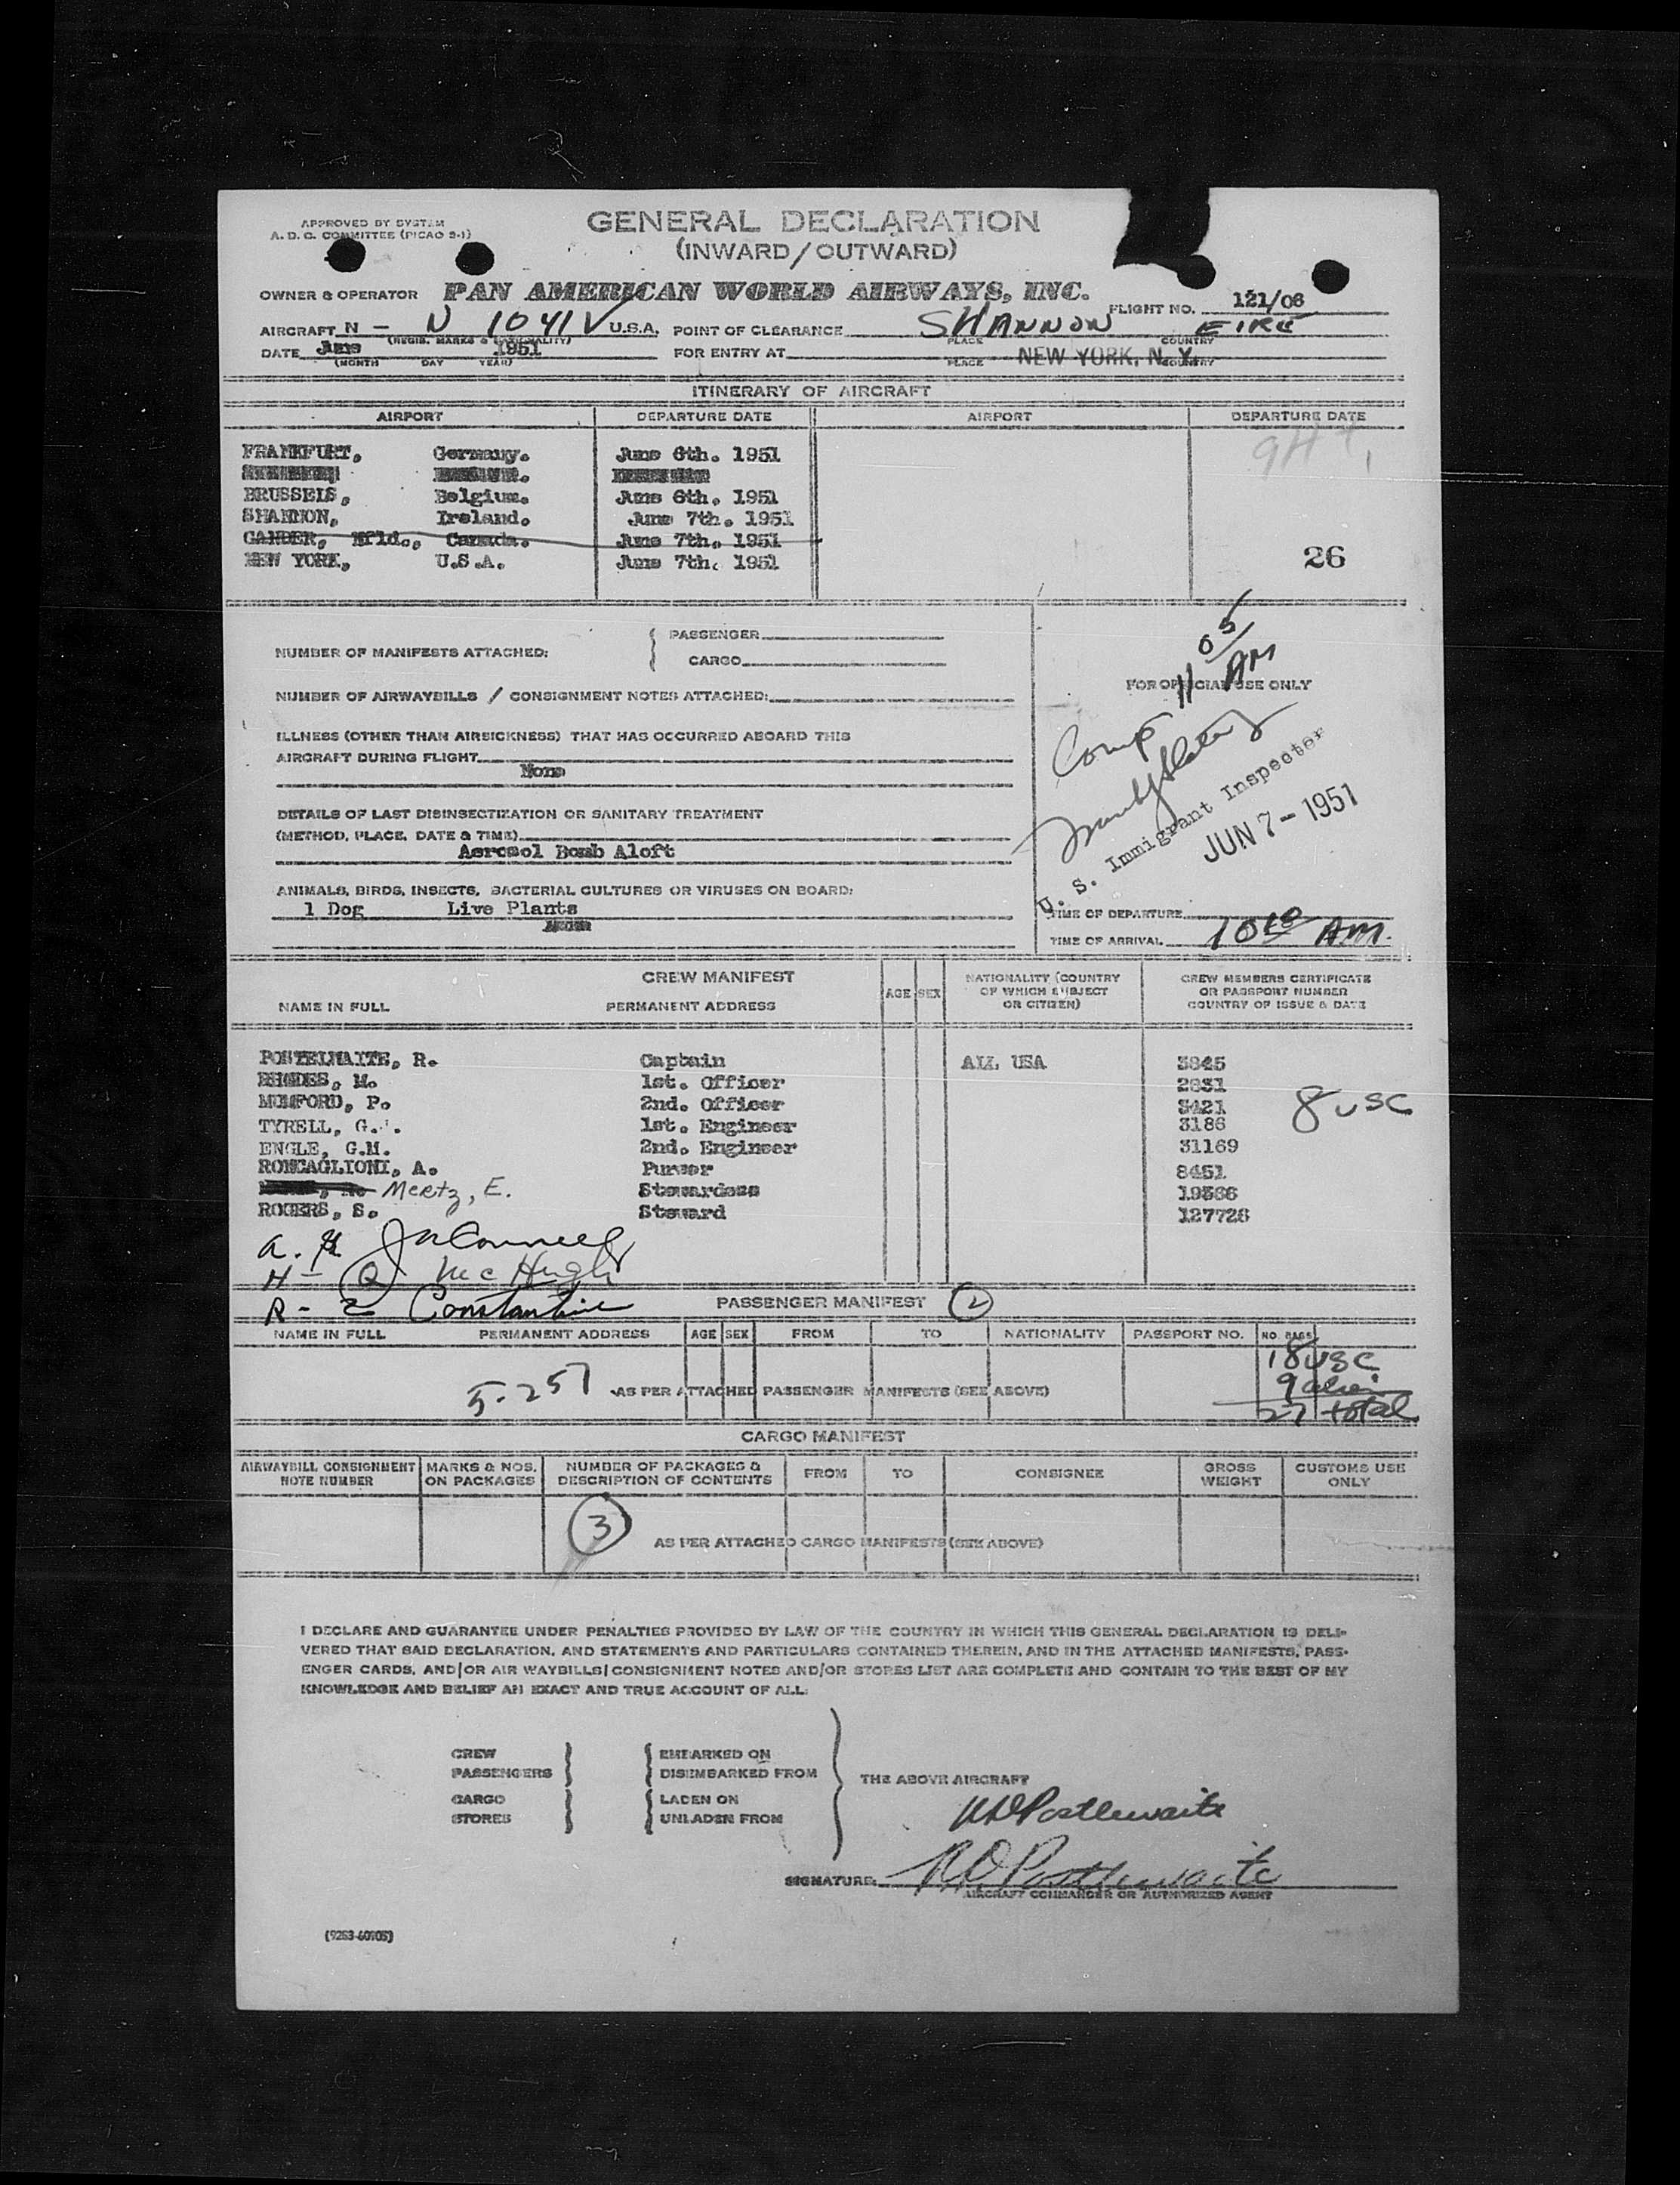 APPROVED BY SYSTEM
A. D. C. COMMITTEE (PICAO 3-1)
GENERAL DECLARATION
(INWARD/OUTWARD)
OWNER & OPERATOR PAN AMERICAN WORLD AIRWAYS, INC. FLIGHT NO. 121/06
AIRCRAFT N - N 1041V U.S.A. POINT OF CLEARANCE SHANNON EIRE
(REGIS. MARKS & NATIONALITY) PLACE COUNTRY
DATE June 1951 FOR ENTRY AT NEW YORK, N. Y.
(MONTH DAY YEAR) PLACE COUNTRY
ITINERARY OF AIRCRAFT
AIRPORT DEPARTURE DATE AIRPORT DEPARTURE DATE
FRANKFURT, Germany. June 6th. 1951
BRUSSELS, Belgium. June 6th. 1951
SHANNON, Ireland. June 7th. 1951
GANDER, Nfld., Canada. June 7th. 1951
NEW YORK, U.S.A. June 7th. 1951
26
NUMBER OF MANIFESTS ATTACHED: { PASSENGER
CARGO
1105 AM
FOR OFFICIAL USE ONLY
NUMBER OF AIRWAYBILLS / CONSIGNMENT NOTES ATTACHED:
ILLNESS (OTHER THAN AIRSICKNESS) THAT HAS OCCURRED ABOARD THIS
AIRCRAFT DURING FLIGHT
None
Comp
U. S. Immigrant Inspector
JUN 7 - 1951
DETAILS OF LAST DISINSECTIZATION OR SANITARY TREATMENT
(METHOD, PLACE, DATE & TIME)
Aerosol Bomb Aloft
ANIMALS, BIRDS, INSECTS, BACTERIAL CULTURES OR VIRUSES ON BOARD:
1 Dog Live Plants
TIME OF DEPARTURE
TIME OF ARRIVAL 10 AM.
CREW MANIFEST
NAME IN FULL PERMANENT ADDRESS AGE SEX NATIONALITY (COUNTRY OF WHICH SUBJECT OR CITIZEN) CREW MEMBERS CERTIFICATE OR PASSPORT NUMBER COUNTRY OF ISSUE & DATE
POSTELWAITE, R. Captain ALL USA 3845
RHODES, M. 1st. Officer 2831
MUMFORD, P. 2nd. Officer 3421
8 USC
TYRELL, G. 1st. Engineer 3186
ENGLE, G.M. 2nd. Engineer 31169
RONCAGLIONI, A. Purser 8451
Mertz, E. Stewardess 19586
ROGERS, S. Steward 127728
H - Q McHugh
R - 2 Constantine
PASSENGER MANIFEST 2
NAME IN FULL PERMANENT ADDRESS AGE SEX FROM TO NATIONALITY PASSPORT NO. NO. BAGS
18 USC
5-257 AS PER ATTACHED PASSENGER MANIFESTS (SEE ABOVE)
9 alien
27 total
CARGO MANIFEST
AIRWAYBILL CONSIGNMENT NOTE NUMBER MARKS & NOS. ON PACKAGES NUMBER OF PACKAGES & DESCRIPTION OF CONTENTS FROM TO CONSIGNEE GROSS WEIGHT CUSTOMS USE ONLY
3
AS PER ATTACHED CARGO MANIFESTS (SEE ABOVE)
I DECLARE AND GUARANTEE UNDER PENALTIES PROVIDED BY LAW OF THE COUNTRY IN WHICH THIS GENERAL DECLARATION IS DELI-
VERED THAT SAID DECLARATION, AND STATEMENTS AND PARTICULARS CONTAINED THEREIN, AND IN THE ATTACHED MANIFESTS, PASS-
ENGER CARDS, AND/OR AIR WAYBILLS/CONSIGNMENT NOTES AND/OR STORES LIST ARE COMPLETE AND CONTAIN TO THE BEST OF MY
KNOWLEDGE AND BELIEF AN EXACT AND TRUE ACCOUNT OF ALL:
CREW EMBARKED ON
PASSENGERS DISEMBARKED FROM
THE ABOVE AIRCRAFT
CARGO LADEN ON
STORES UNLADEN FROM
RD Postlewaite
SIGNATURE: RD Postlewaite
AIRCRAFT COMMANDER OR AUTHORIZED AGENT
(9253-60905)